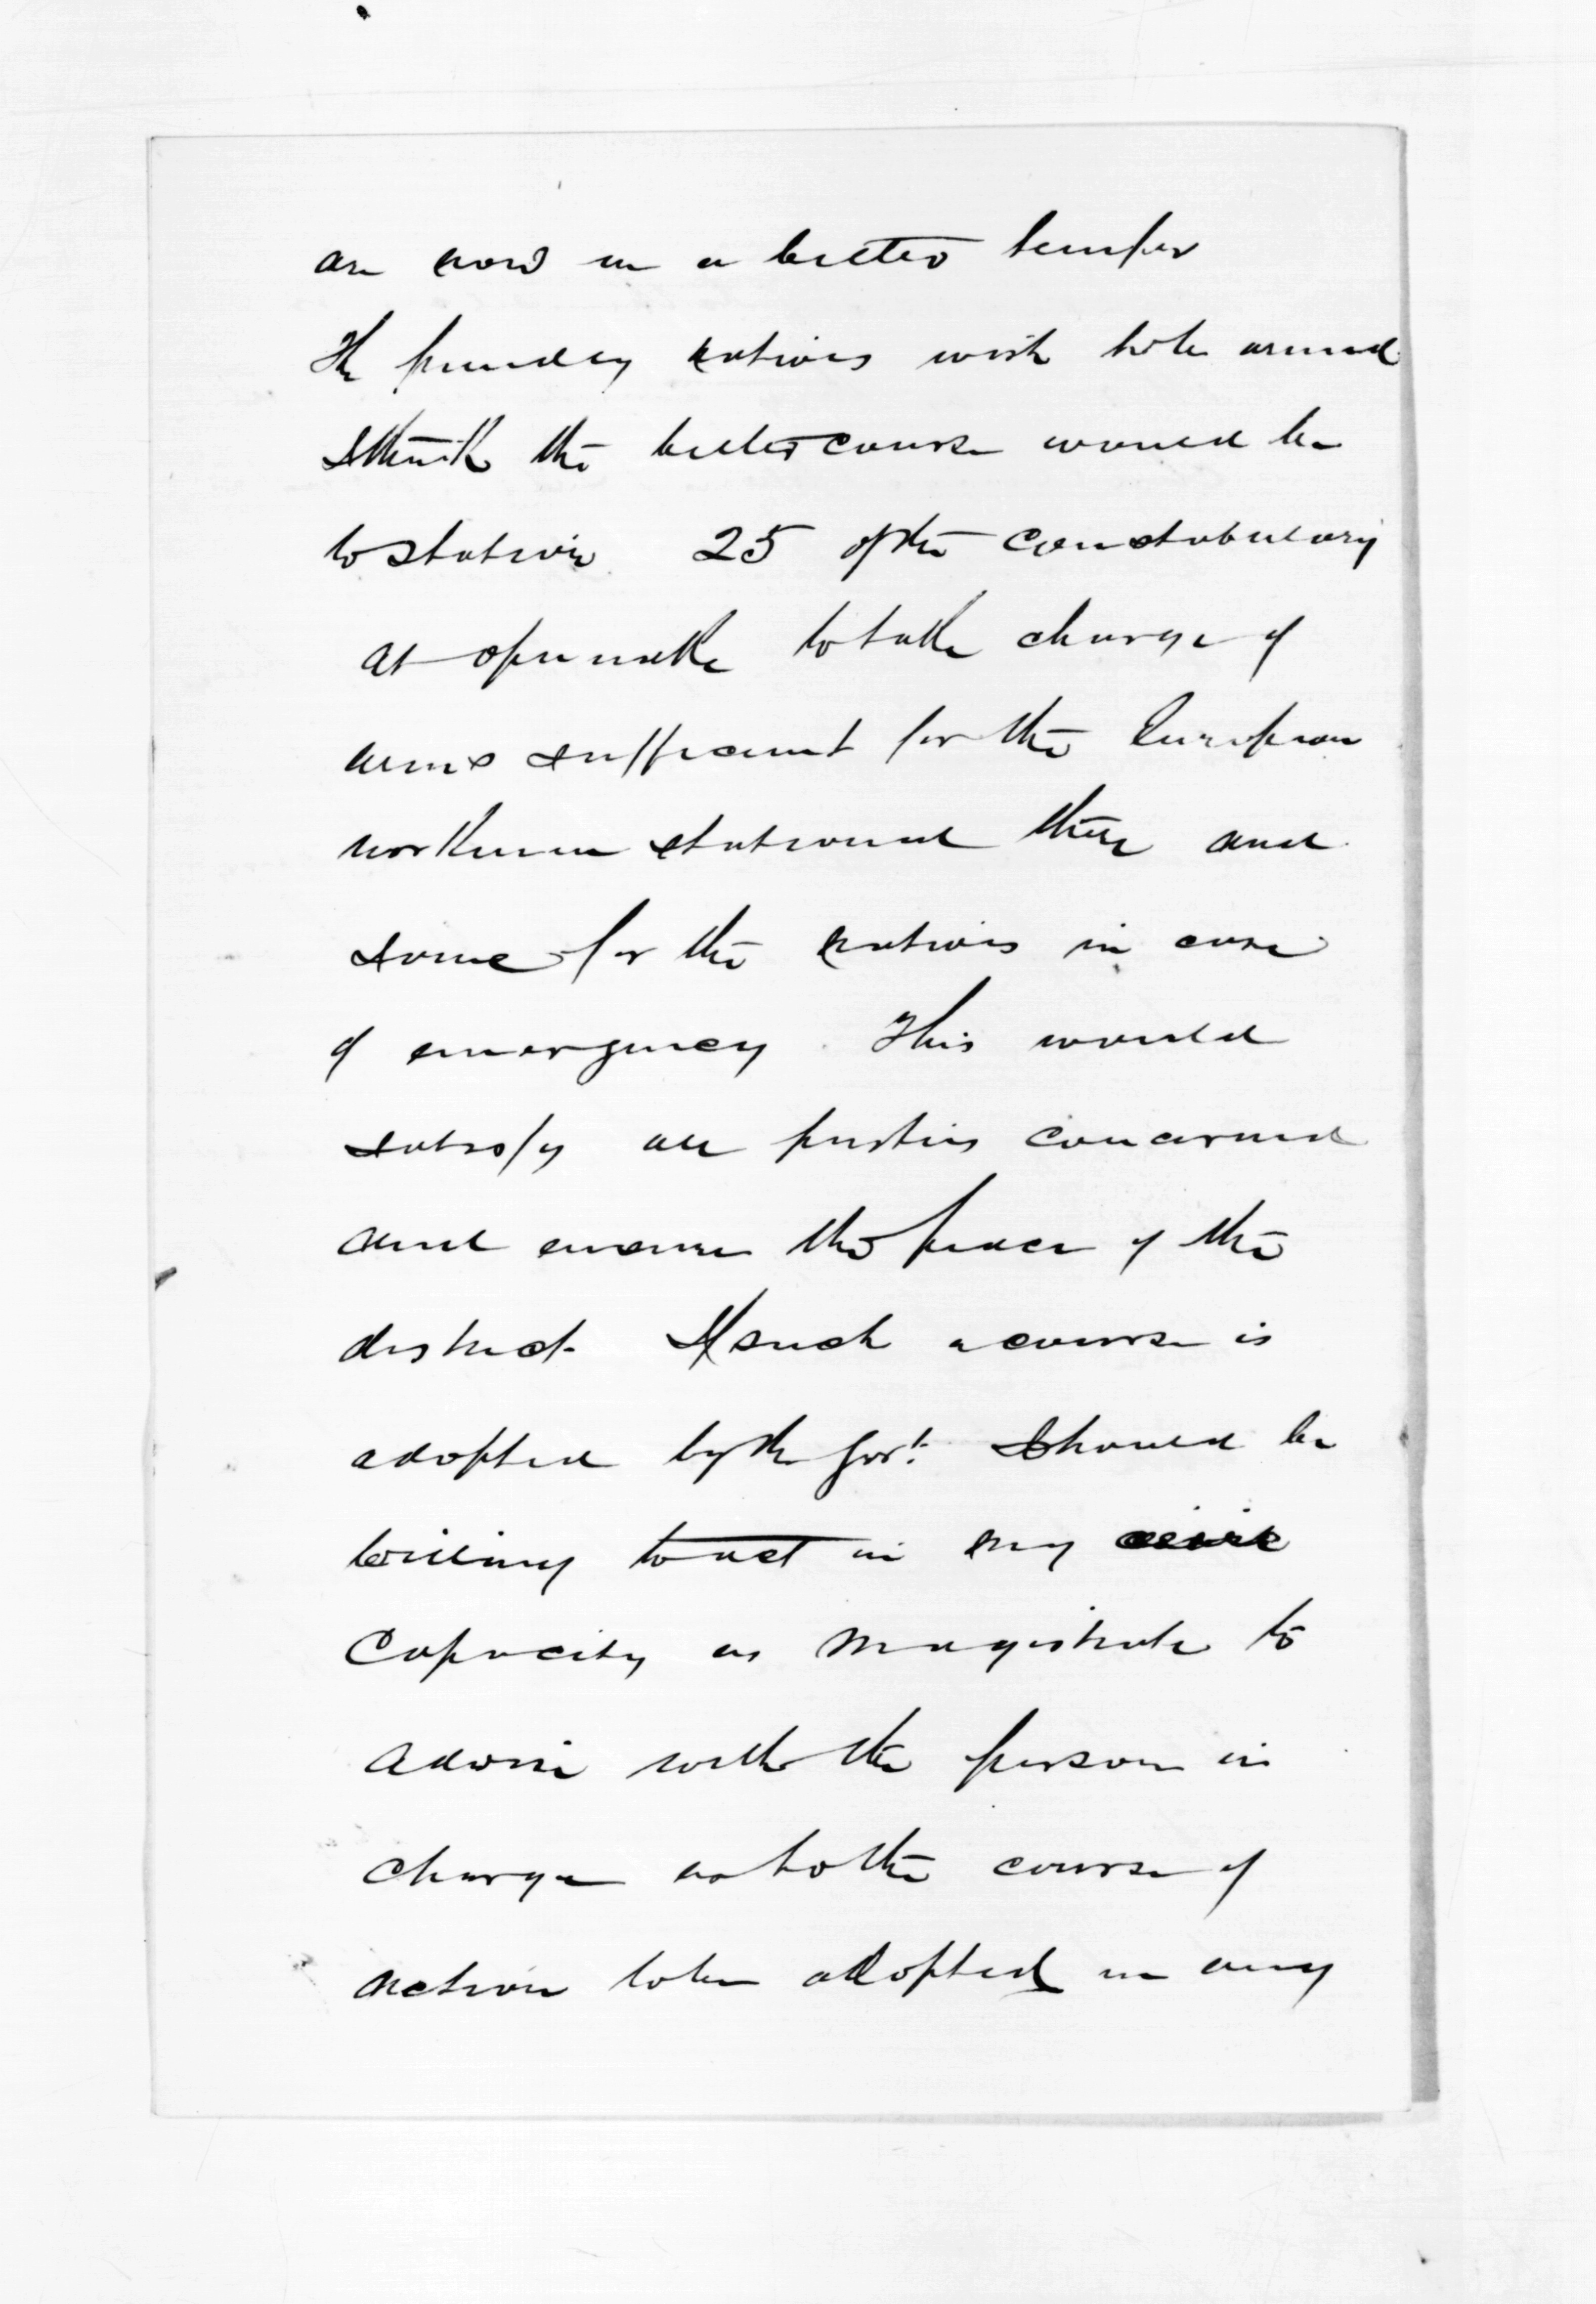 are now in a better temper
The friendly natives wish to be armed
I think the better course would be
to station 25 of the constabulary
at Opunake to take charge of
arms sufficient for the European
workmen stationed there and
some for the natives in case
of emergency. This would
satisfy all parties concerned
and ensure the peace of the
district. If such a course is
adopted by the Govt. I should be
willing to act in my
Capacity as Magistrate to
advise with the person in
charge as to the course of
action to be adopted in any